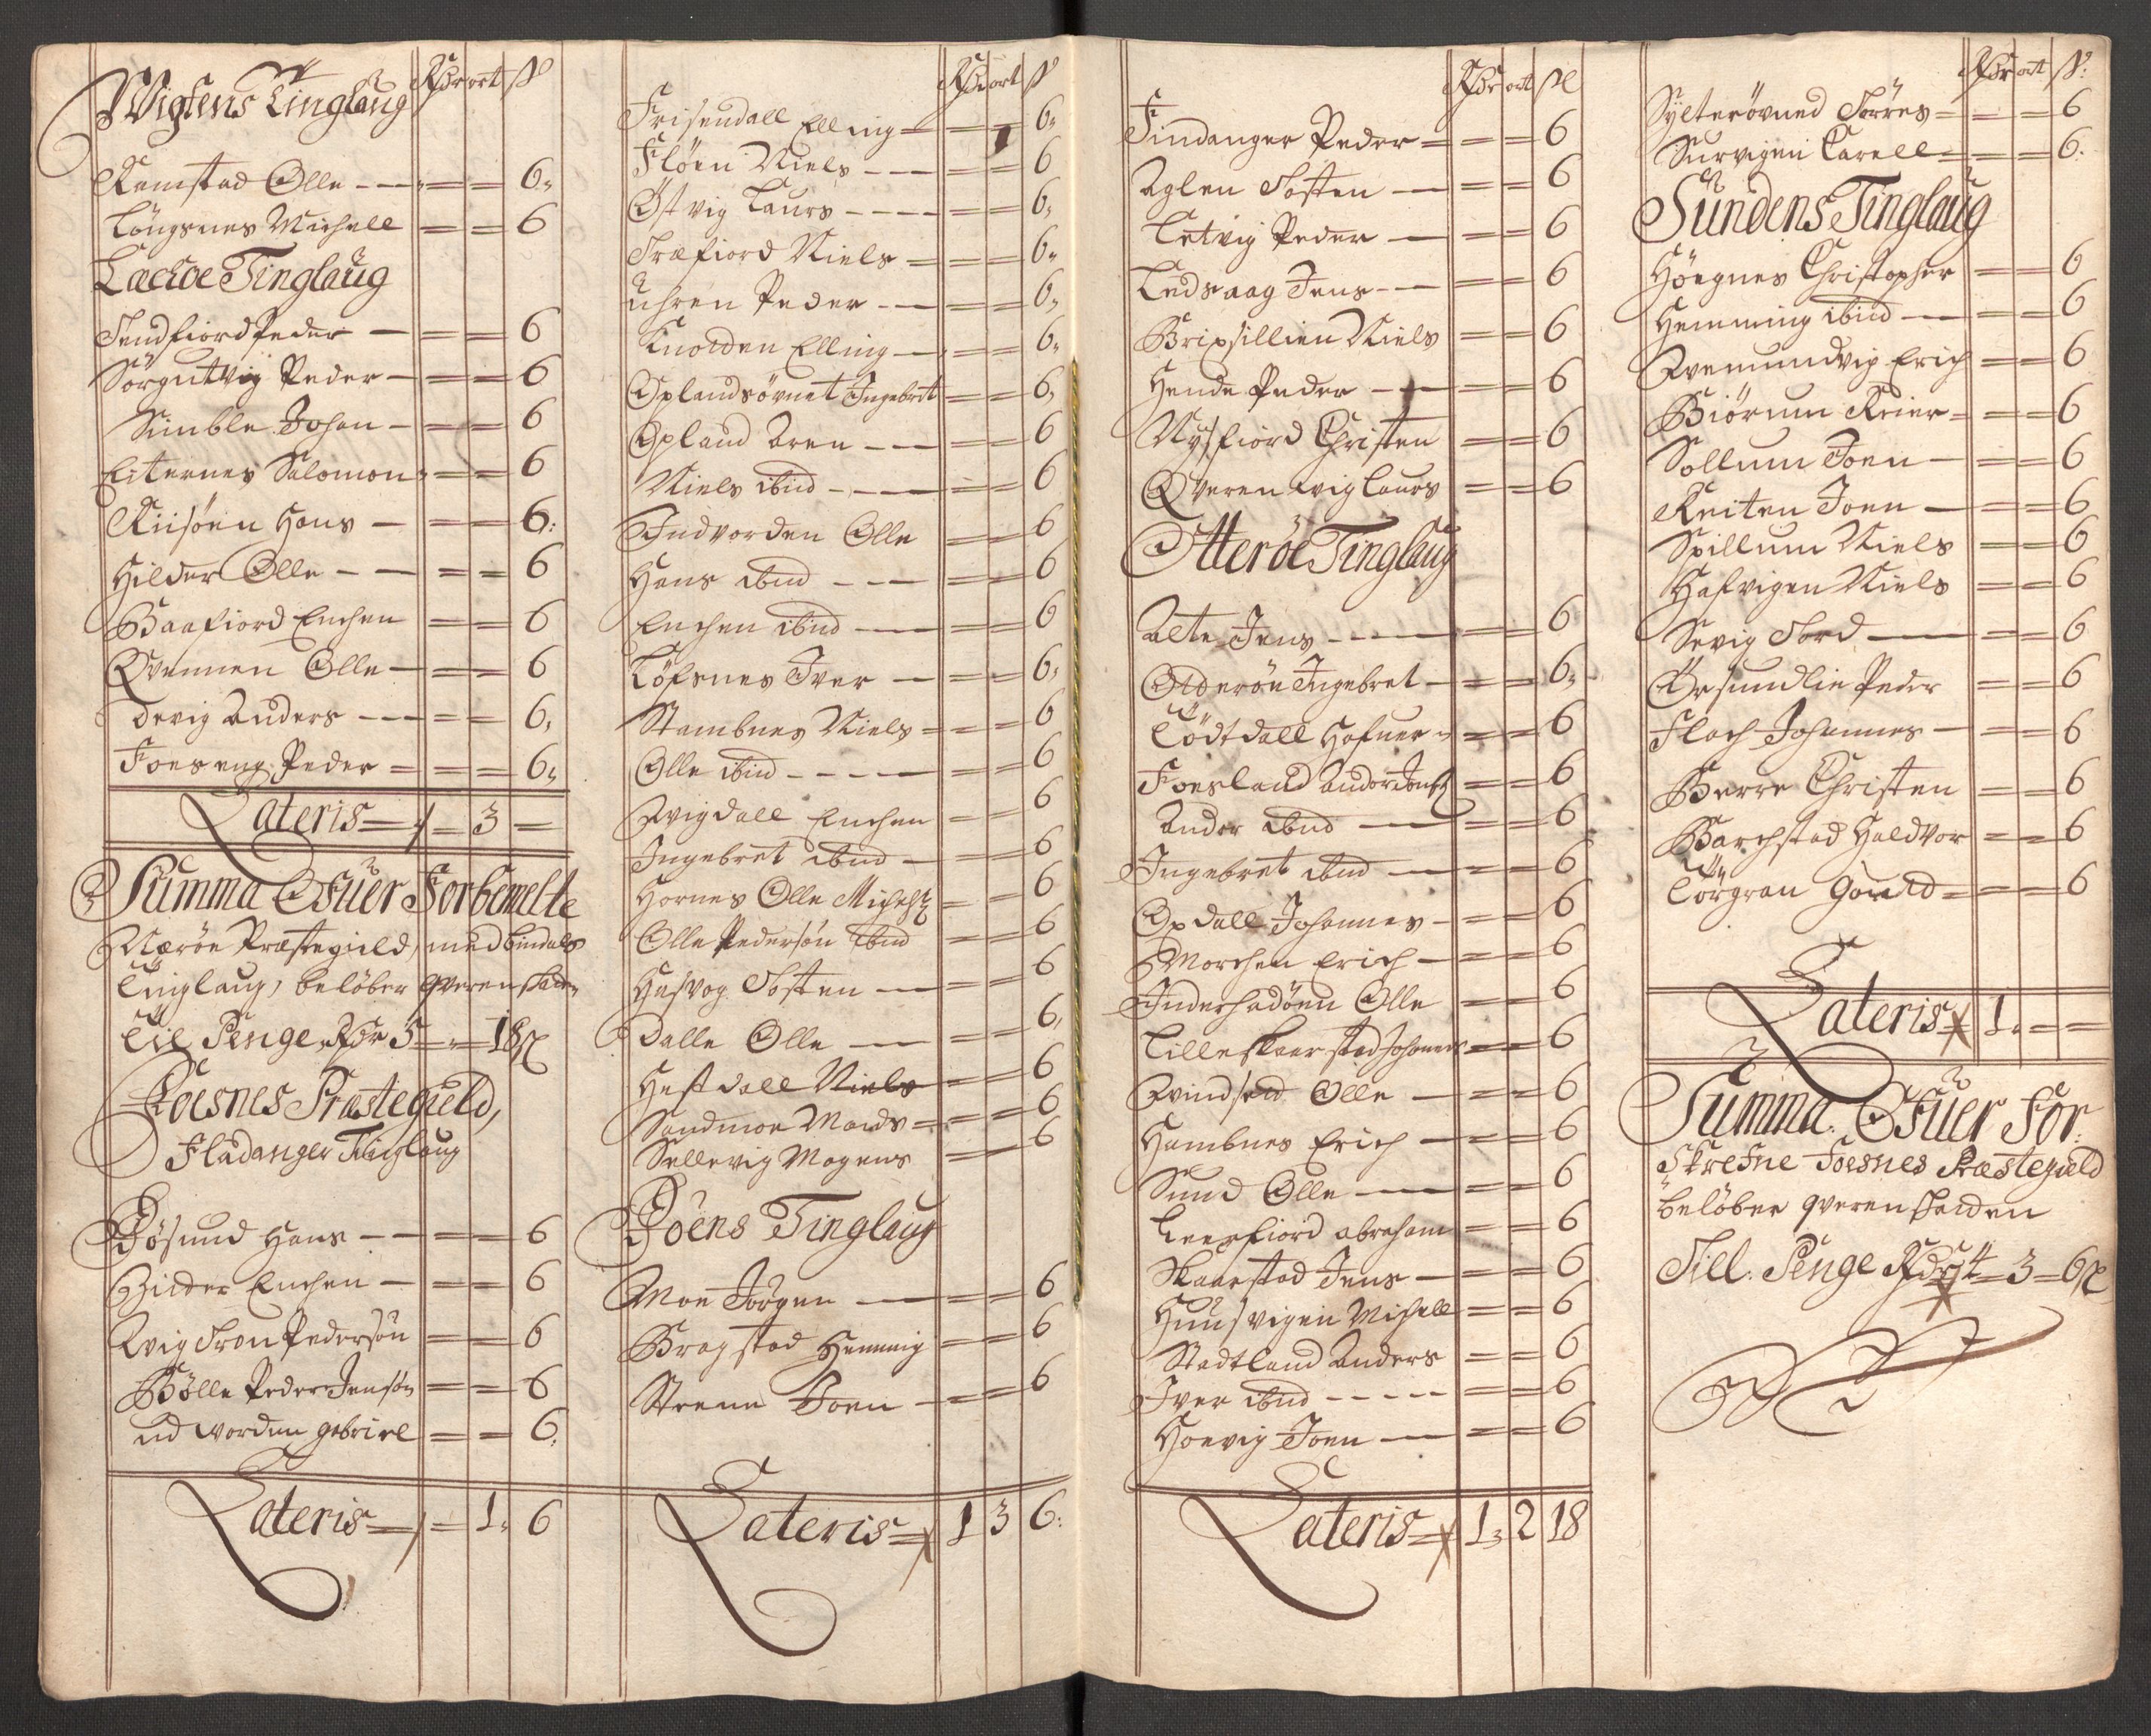 Rdr ort ß
Wigtens Tinglaug
Ramstad Olle - - - = = 6
Löngsnes Michell = = 6
Leckøe Tinglaug
Sendfiord Peder - = = 6
Sörgutvig Peder - = = 6
Simble Johan - = = 6
Eiternes Salomon = = 6
Riisöen Hans - = = 6
Hilder Olle - - = = 6
Baafiord Enchen = = 6
Qvennen Olle - = = 6
devig Anders - - - = = 6
Foeseng Peder = = = 6
Lateris = 3 -
Summa Ofuer Forbemelte
Nærøe Præstegield, med Bindals
Tinglaug, beløber qverenskatten
til Penge Rdr 3 - 18 ß
Foesnes Præstegield,
Fladanger Tinglaug
Bösund Hans - - = = 6
Zilder Enchen - = = 6
Qvig Tron Pedersön = = 6
Bölle Peder Jensön = = 6
ud worden gabriel = = 6
Lateris = - 1 6
Rdr ort ß
Frisendall Elling = = = 6
Flöen Niels - - - = = 6
Östvig Laurs - - - - = = 6
Træfiord Niels = = = 6
Uhren Peder - - = = 6
Knolden Elling - = = 6
Oplandsövnet Ingebret = = 6
Opland Aren - - = = 6
Niels ibid - - - - = = 6
Indvorden Olle = = 6
Hans ibid - - - = = 6
Enchen ibid - - = = 6
Löfsnes Iver - = = 6
Stambnes Niels = = = 6
Olle ibid - - - - - = = 6
Qvigdall Enchen = = 6
Ingebret ibid - = = 6
Hornes Olle Michels: = = 6
Olle Pedersön ibid = = 6
Hasvog Tosten - = = 6
Dalle Olle - = = 6
Hestdall Niels = = 6
Sandmoe Mads = = = 6
Sellevig Mogens = = 6
Böens Tinglaug
Moe Jörgen - = = 6
Bragstad Hemmig = = 6
Strenn Joen - = = 6
Lateris = 1 3 6
Rdr ort ß
Findanger Peder = = = 6
Aglen Tosten - = = 6
Letvig Peder - = = 6
Ledsaag Jens - - = = 6
Brixsillien Niels = = 6
Hende Peder - - = = 6
Nysfiord Christen = = 6
Qveren wig Laurs = = 6
Otteröe Tinglaug
Alte Jens - - - - = = 6
Olderöe Ingebret - = = 6
Tödtdall Hafner = = = 6
Foesland Ander Jens: = = 6
Ander ibid - = = 6
Ingebret ibid - = = 6
Opdall Johannes - = = 6
Morchen Erich - = = 6
Inderhadöen Olle = = 6
Lilleskaerstad Johannes = = 6
Qvindsed Olle - = = 6
Hambnes Erich - = = 6
Sund Olle - = = 6
Leerfiord abraham = = 6
Skaerstad Jens - = = 6
Huusvigen Michell = = 6
Stadtland Anders = = 6
Iver ibid - - - - - = = 6
Hoevig Joen - = = 6
Lateris = 1 2 18
Rdr ort ß:
Sylterövned Törres = = = 6
Survigen Carell = = = 6
Sundens Tinglaug
Höegnes Christopher = = 6
Hemming ibid - = = 6
Avemundvig Erich = = 6
Biörum Reier = = = 6
Sollum Joen - = = 6
Reiten Joen - = = 6
Spillum Niels = = 6
Hafvigen Niels = = 6
Sevig Tord - = = 6
Örsundlie Peder = = 6
Flach Johannes - = = 6
Berre Christen = = 6
Barchstad Haldvor = = 6
Lörgran = = = 6
Lateris = 1 - -
Summa Ofuer For:
Skrefne Foesnes Præstegield
beløber qverenskatten
Till. Penge Rdr - 3 - 6 ß